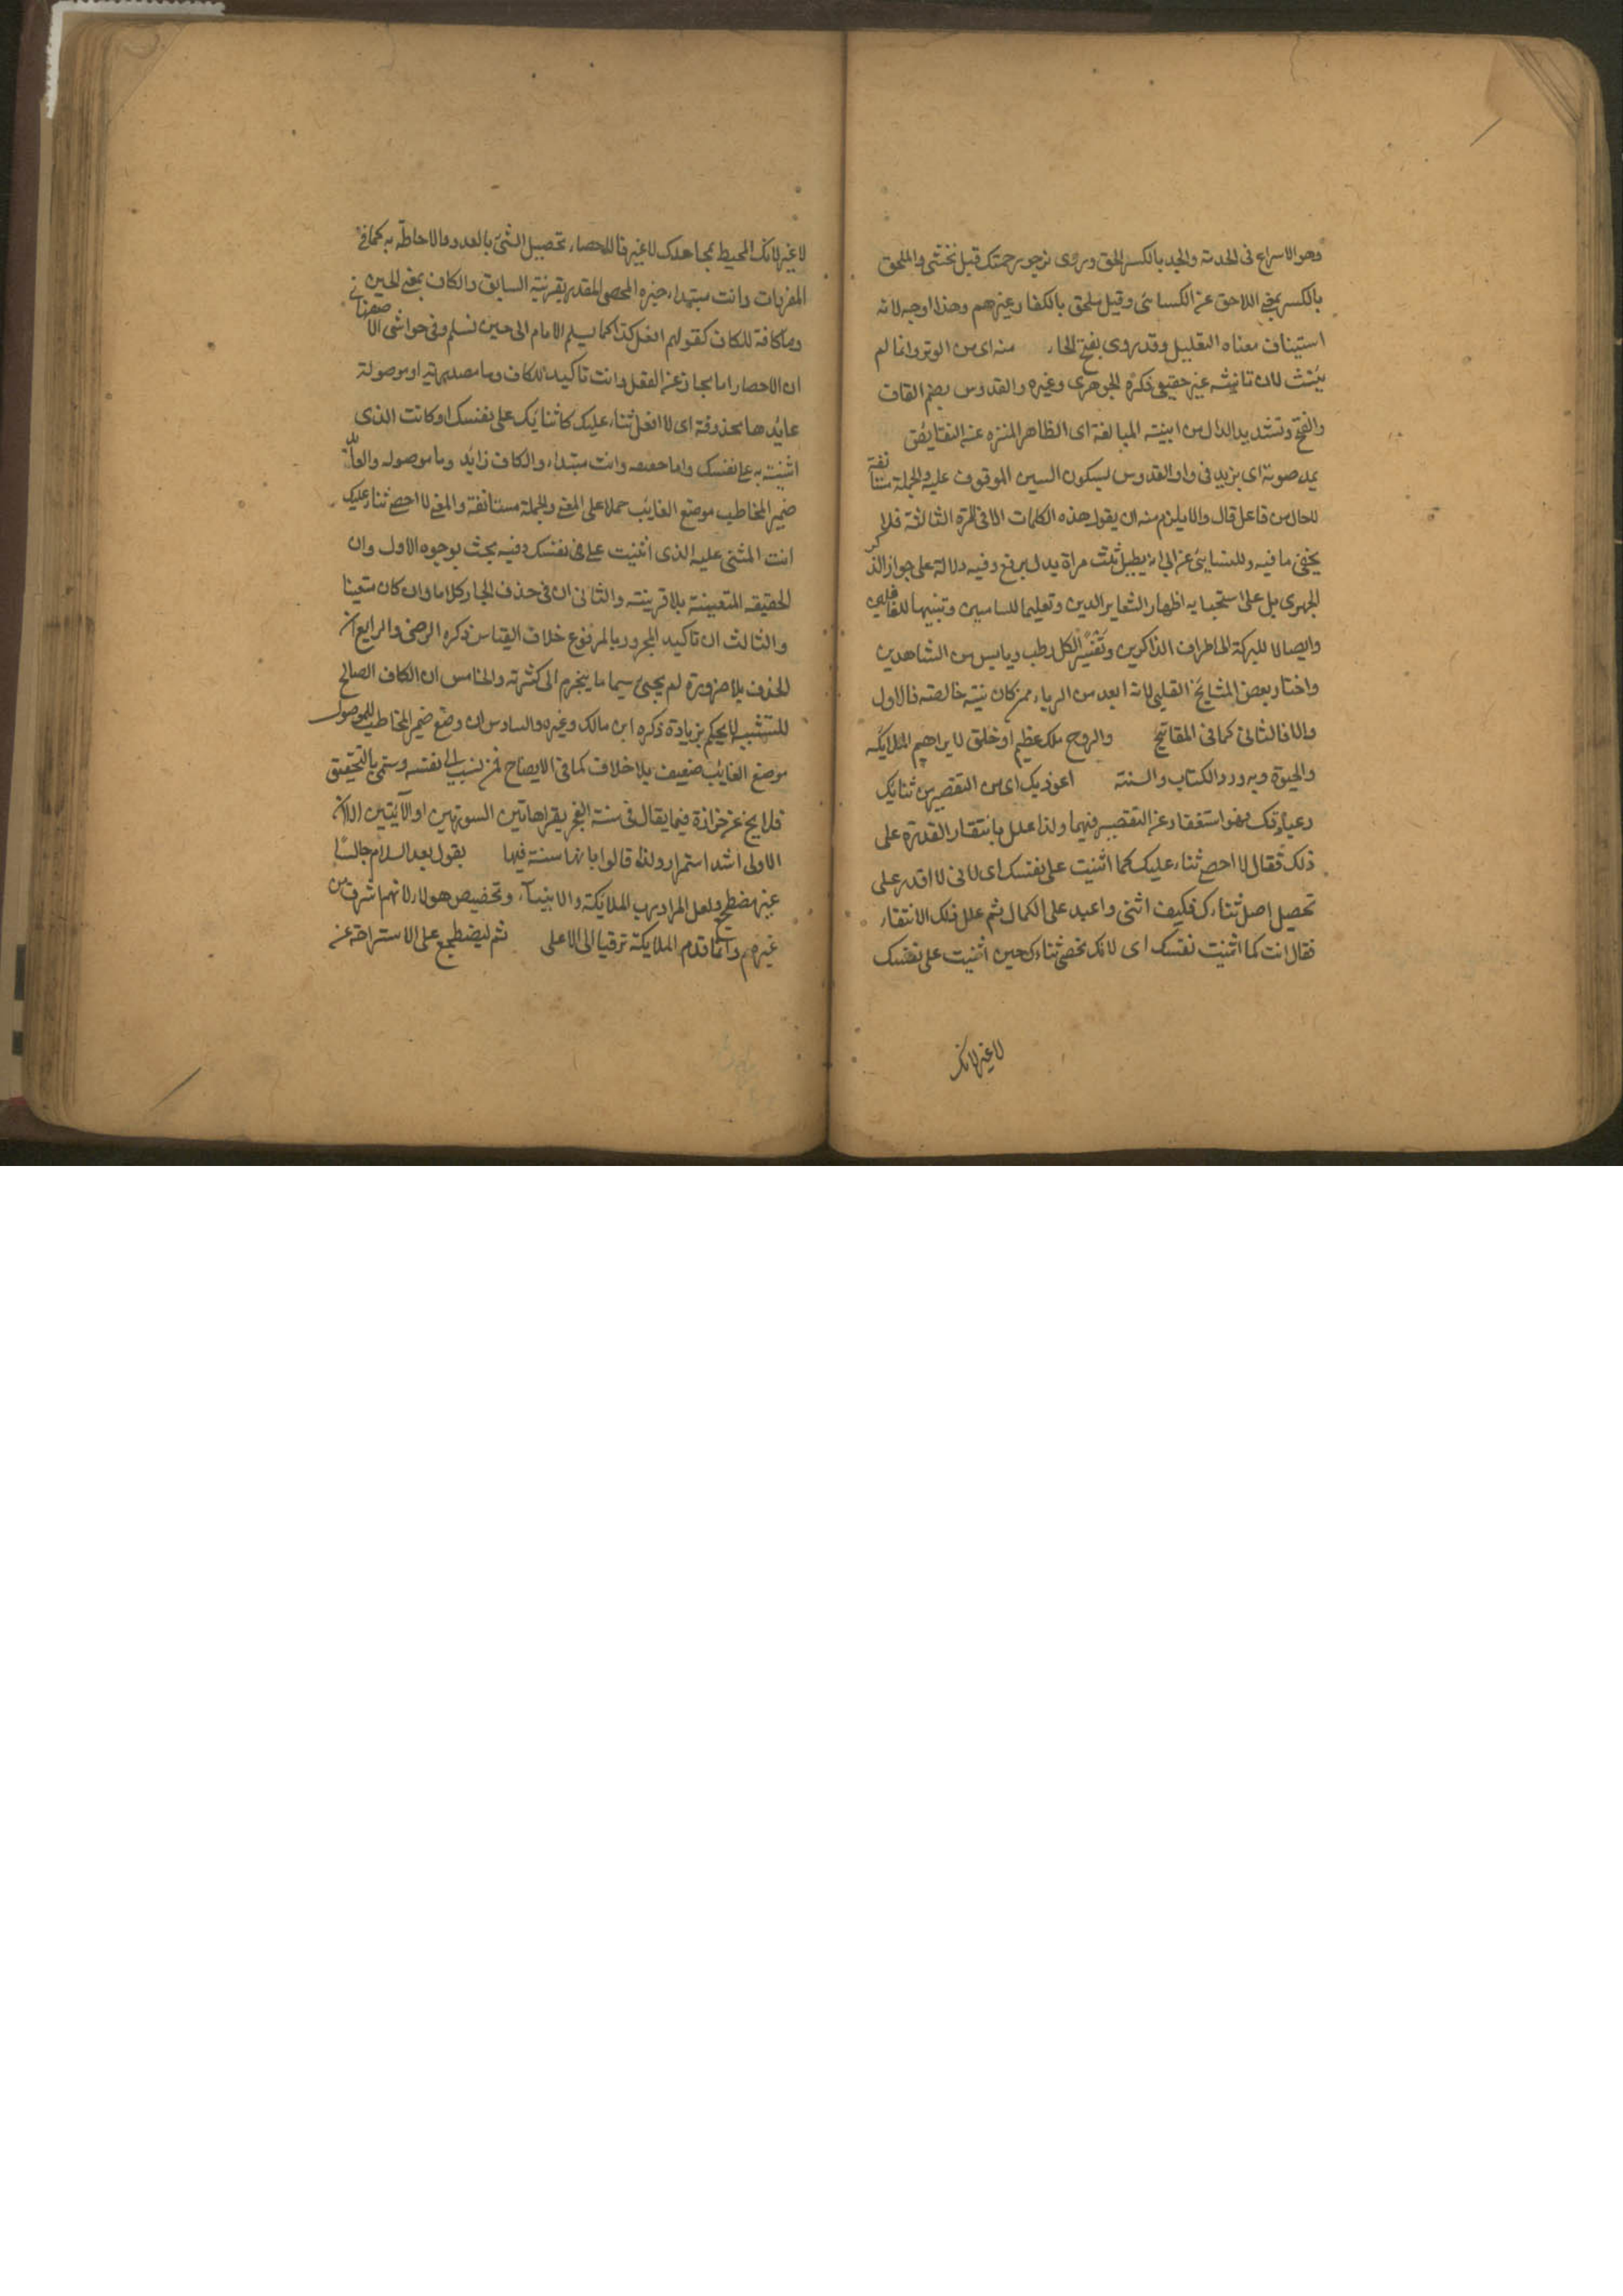 وهو الاسراع فى الخدمة والجد بالكسر الحق ويروى نرجو رحمتك قبل نخشى والملحق
بالكسر بمعنى اللاحق عن الكسائى وقيل ملحق بالكفار وغيرهم وهذا اوجه لانه
استيناف معناه التعليل وقد يروى بفتح الحاء منه اى من الوتر وانما لم
يؤنث لان تانيثه غير حقيقى ذكره الجوهرى وغيره والقدوس بضم القاف
والفتح وتشديد الدال من ابنية المبالغة اى الظاهر المنزه عن النقايص
يمد صوته اى يزيد فى واو القدوس بسكون السين الموقوف عليه والجملة مستانفة
للحال من فاعل قال والا يلزم منه ان يقول هذه الكلمات الا فى المرة الثالثة فلا
يخفى ما فيه وللنسايئ عن ابى يطيل ثلث مراة يدل يرفع وفيه دلالة على جواز الذكر
الجهرى بل على استحبابه اظهار الشعاير الدين وتعليما للسامعين وتنبيها للغافلين
وايصالا للبركة الى اطراف الذاكرين الكل رطب ويابس من الشاهدين
واختار بعض المشايخ القلبى لانه ابعد من الرياء فمن كان نيته خالصة فالاول
والا فالثانى كما فى المفاتيح والروح ملك عظيم او خلق لا يراهم الملايكة
والحيوة وبه ورد الكتاب والسنة اعوذ بك اى من التقصير من ثنايك
وعبادتك فهو استغفار عن التقصير فيهما ولذا علل بانتفاء القدرة على
ذلك فقال لا احصى ثناء عليك كما اثنيت على نفسك اى لانى لا اقدر على
تحصيل اصل ثنائك فكيف اثنى واعبد على الكمال ثم علل ذلك الانتفاء
فقال انت كما اثنيت نفسك اى لانك تحصى ثناءك حين اثنيت على نفسك
لا غير لانك
لا غير لانك المحيط بمجاهدك لا غير فالاحصاء تحصيل الشئ بالعدد والاحاطة به كما فى
المفردات وانت مبتداء خبره المحصى المقدر بقرينة السابق والكاف بمعنى الحين
وما كافة للكاف كقولهم افعل كذا كما يسلم الامام اى حين نسلم وفى حواشى الاصفهانى
ان الاحصاء اما مجاز عن الفعل وانت تاكيد للكاف وما مصدرية او موصولة
عايدها محذوفة اى لا افعل ثناء عليك كثنايك على نفسك او كانت الذى
اثنيته به على نفسك واما حقيقة وانت مبتداء والكاف زايد وما موصولة والعائد
ضمير المخاطب موضع الغايب حملا على المعنى والجملة مستانفة والمعنى لا احصى ثناء عليك
انت المثنى عليه الذى اثنيت على نفسك وفيه بحث بوجوه الاول وان
الحقيقة المتعينة بلا قرينة والثانى ان فى حذف الجار كلاما وان كان متعينا
والثالث ان تاكيد المجرور بالمرفوع خلاف القياس ذكره الرضى والرابع ان
الحذف بلا ضرورة لم يجئ سيما ما ينجرم الى كثرته والخامس ان الكاف الصالح
للتشبيه لا يحكم بزيادة ذكره ابن مالك وغيره والسادس ان وضع ضمير المخاطب للموصول
موضع الغايب ضعيف بلا خلاف كما فى الايضاح فمن نسب الى نفسه وسمى بالتحقيق
فلا يخ عن حزازة فيما يقال فى سنة الفجر يقرا هاتين السورتين او الآيتين الا ان
الاولى اشد استمرار ولذا قالوا بانها سنة فيها يقول بعد السلام جالسا
غير مضطجع ولعل المراد برب الملايكة والانبياء وتخصيص هولاء لانهم اشرف من
غيرهم وانما قدم الملايكة ترقيا الى الاعلى ثم ليضطجع على الاستراحة عن